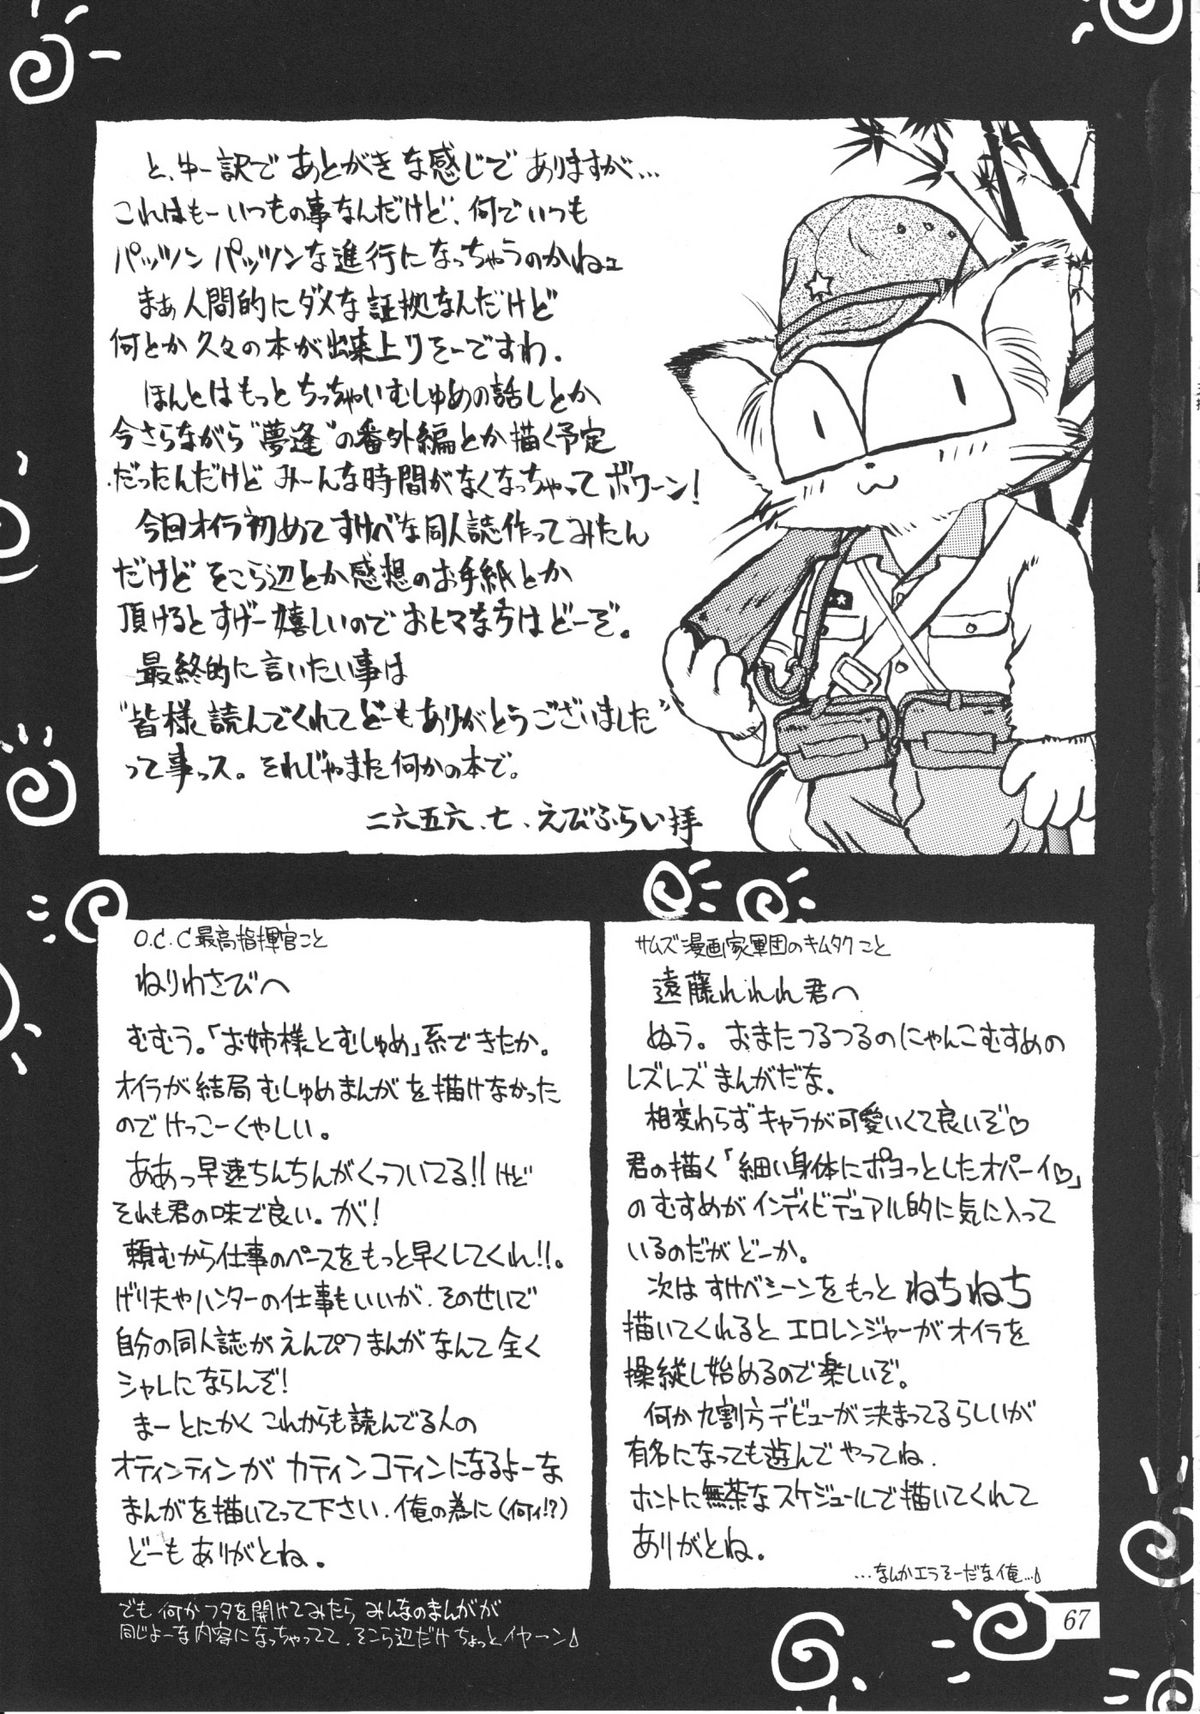 と、ゆー訳で あとがきな感じで ありますが…
これはもーいつもの事なんだけど、何でいつも
パッツン パッツンな進行になっちゃうのかねェ
まぁ人間的にダメな証拠なんだけど
何とか久々の本が出来上りそーですわ.
ほんとはもっとちっちゃいむしゅめの話しとか
今さらながら"夢逢"の番外編とか描く予定
だったんだけど みーんな時間がなくなっちゃってボワーン!
今回オイラ初めてすけべな同人誌作ってみたん
だけど そこら辺とか感想のお手紙とか
頂けるとすげー嬉しいのでおヒマな方はどーぞ。
最終的に言いたい事は
"皆様読んでくれてどーもありがとうございました"
って事っス。それじゃまた何かの本で。
二六五六.七.えびふらい拝
O.C.C最高指揮官こと
ねりわさびへ
むむう。「お姉様とむしゅめ」系できたか。
オイラが結局むしゅめまんがを描けなかった
のでけっこーくやしい。
ああっ早速ちんちんがくっついてる!!けど
それも君の味で良い。が!
頼むから仕事のペースをもっと早くしてくれ!!。
げり夫やハンターの仕事もいいが、そのせいで
自分の同人誌がえんぴつまんがなんて全く
シャレにならんぞ!
まーとにかくこれからも読んでる人の
オティンティンがカティンコティンになるよーな
まんがを描いてって下さい.俺の為に(何ィ!?)
どーもありがとね.
でも何かフタを開けてみたらみんなのまんがが
同じよーな内容になっちゃってて、そこら辺だけちょっとイヤーン♪
サムズ漫画家軍団のキムタクこと
遠藤れれれ君へ
ぬう。おまたつるつるのにゃんこむすめの
レズレズまんがだな。
相変わらずキャラが可愛いくて良いぞ♡
君の描く「細い身体にポヨっとしたオパーイ♡」
のむすめがインディビデュアル的に気に入って
いるのだがどーか。
次はすけべシーンをもっとねちねち
描いてくれるとエロレンジャーがオイラを
操縦し始めるので楽しいぞ。
何か九割方デビューが決まってるらしいが
有名になっても遊んでやってね.
ホントに無茶なスケジュールで描いてくれて
ありがとね。
…なんかエラそーだな俺…♪
67